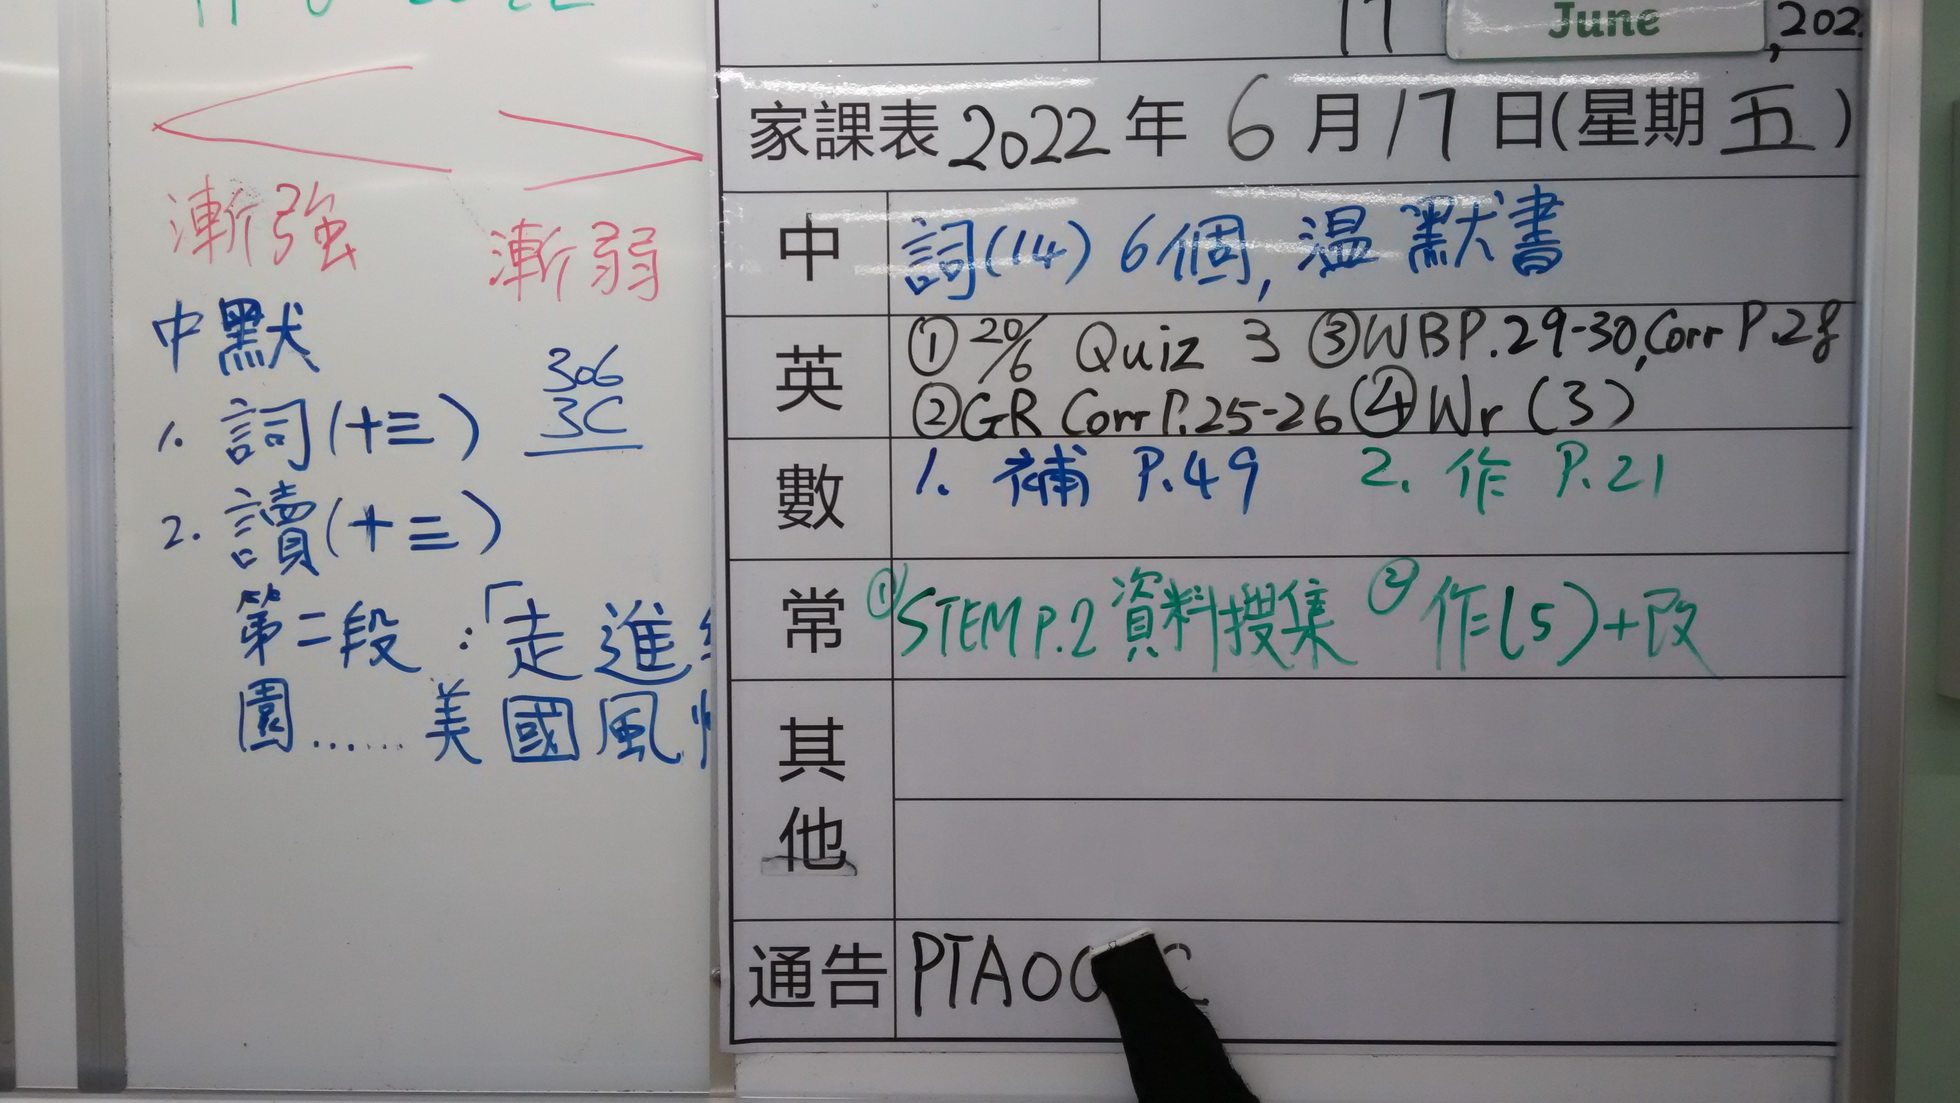 漸強
漸弱
中默
306
3C
1. 詞(十三)
2. 讀(十三)
第二段:「走進
園......美國風
17 June, 202
家課表 2022年 6月17日(星期五)
中 詞(14) 6個, 温默書
英 ① 20/6 Quiz 3 ③ WB P.29-30, Corr P.28
② GR Corr P.25-26 ④ Wr (3)
數 1. 補 P.49 2. 作 P.21
常 ① STEM P.2 資料搜集 ② 作(5)+改
其他
通告 PTA00